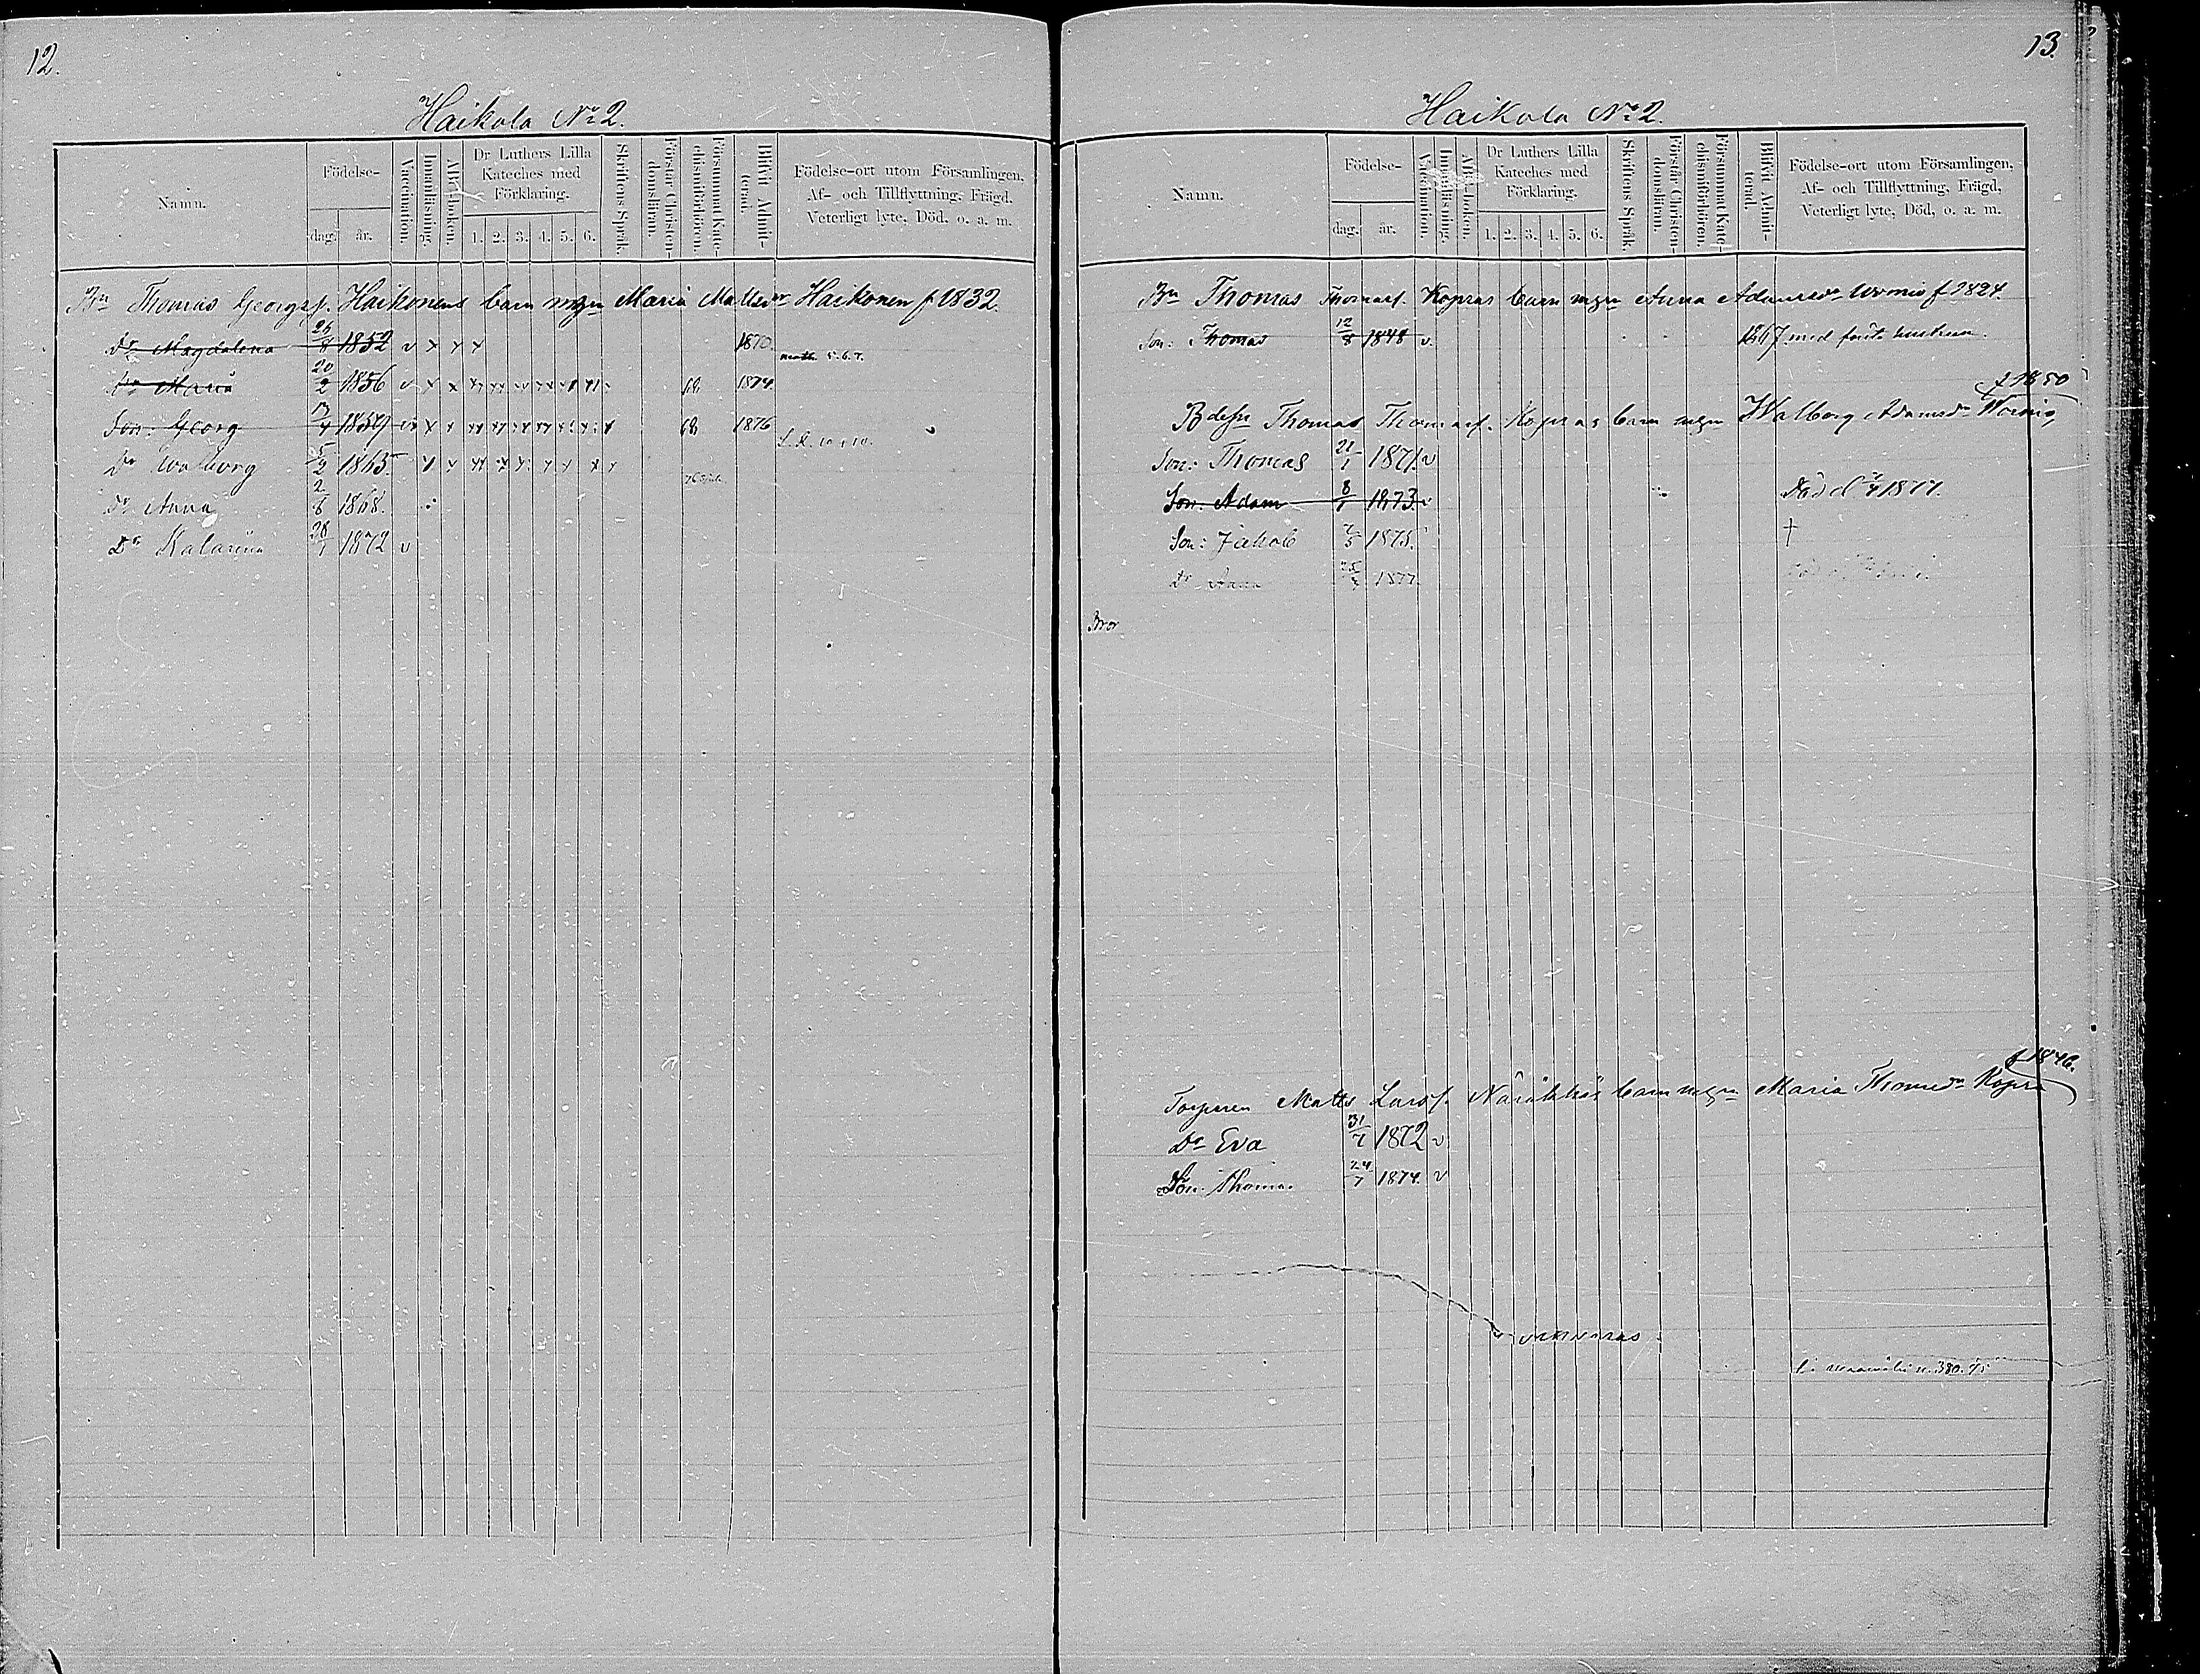 12.
Haikola No 2.
Namn.
Födelse-
dag. år.
Vaccination.
Innanläsning.
ABC-boken.
Dr Luthers Lilla Kateches med Förklaring.
1. 2. 3. 4. 5. 6.
Skriftens Språk.
Förstår Christendomsläran.
Försummat Katechismiförhören.
Blifvit Admitterad.
Födelse-ort utom Församlingen,
Af- och Tillflyttning, Frägd,
Veterligt lyte, Död, o. a. m.
Bn Thomas Georgsf. Haikonens barn mgn Maria Mattsdr Haikonen f 1832.
Dr Magdalena 26/8 1852 v x x x 1870.
Dr Maria 20/2 1856 1874.
Son: Georg 1859 1876
Dr Walborg 5/2 1863
Dr Anna 2/6 1868.
Dr Katarina 28/1 1872 v
13.
Haikola No 2.
Namn.
Födelse-
dag. år.
Vaccination.
Innanläsning.
ABC-boken.
Dr Luthers Lilla Kateches med Förklaring.
1. 2. 3. 4. 5. 6.
Skriftens Språk.
Förstår Christendomsläran.
Försummat Katechismiförhören.
Blifvit Admitterad.
Födelse-ort utom Församlingen,
Af- och Tillflyttning, Frägd,
Veterligt lyte, Död, o. a. m.
Bn Thomas Thomasf. Kopras barn mgn Anna Adamsdr Wornio f 1824.
Son: Thomas 12/8 1848 v. 1867. med första hustrun.
f 1850
Thomas Thomasf. Kopras barn mgn Walborg Adamsdr Wornio,
Son: Thomas 21/1 1871. v
Son: Adam 1873. v Död d. 1877.
Son: Jakob 1875. †
Dr Anna 1877.
Bror
f 1846.
Torparen Matts Larsf. barn mgn Maria Thomasdr Kopra
Dr Eva 31/7 1872 v
Son: Thomas 24/7 1874. v